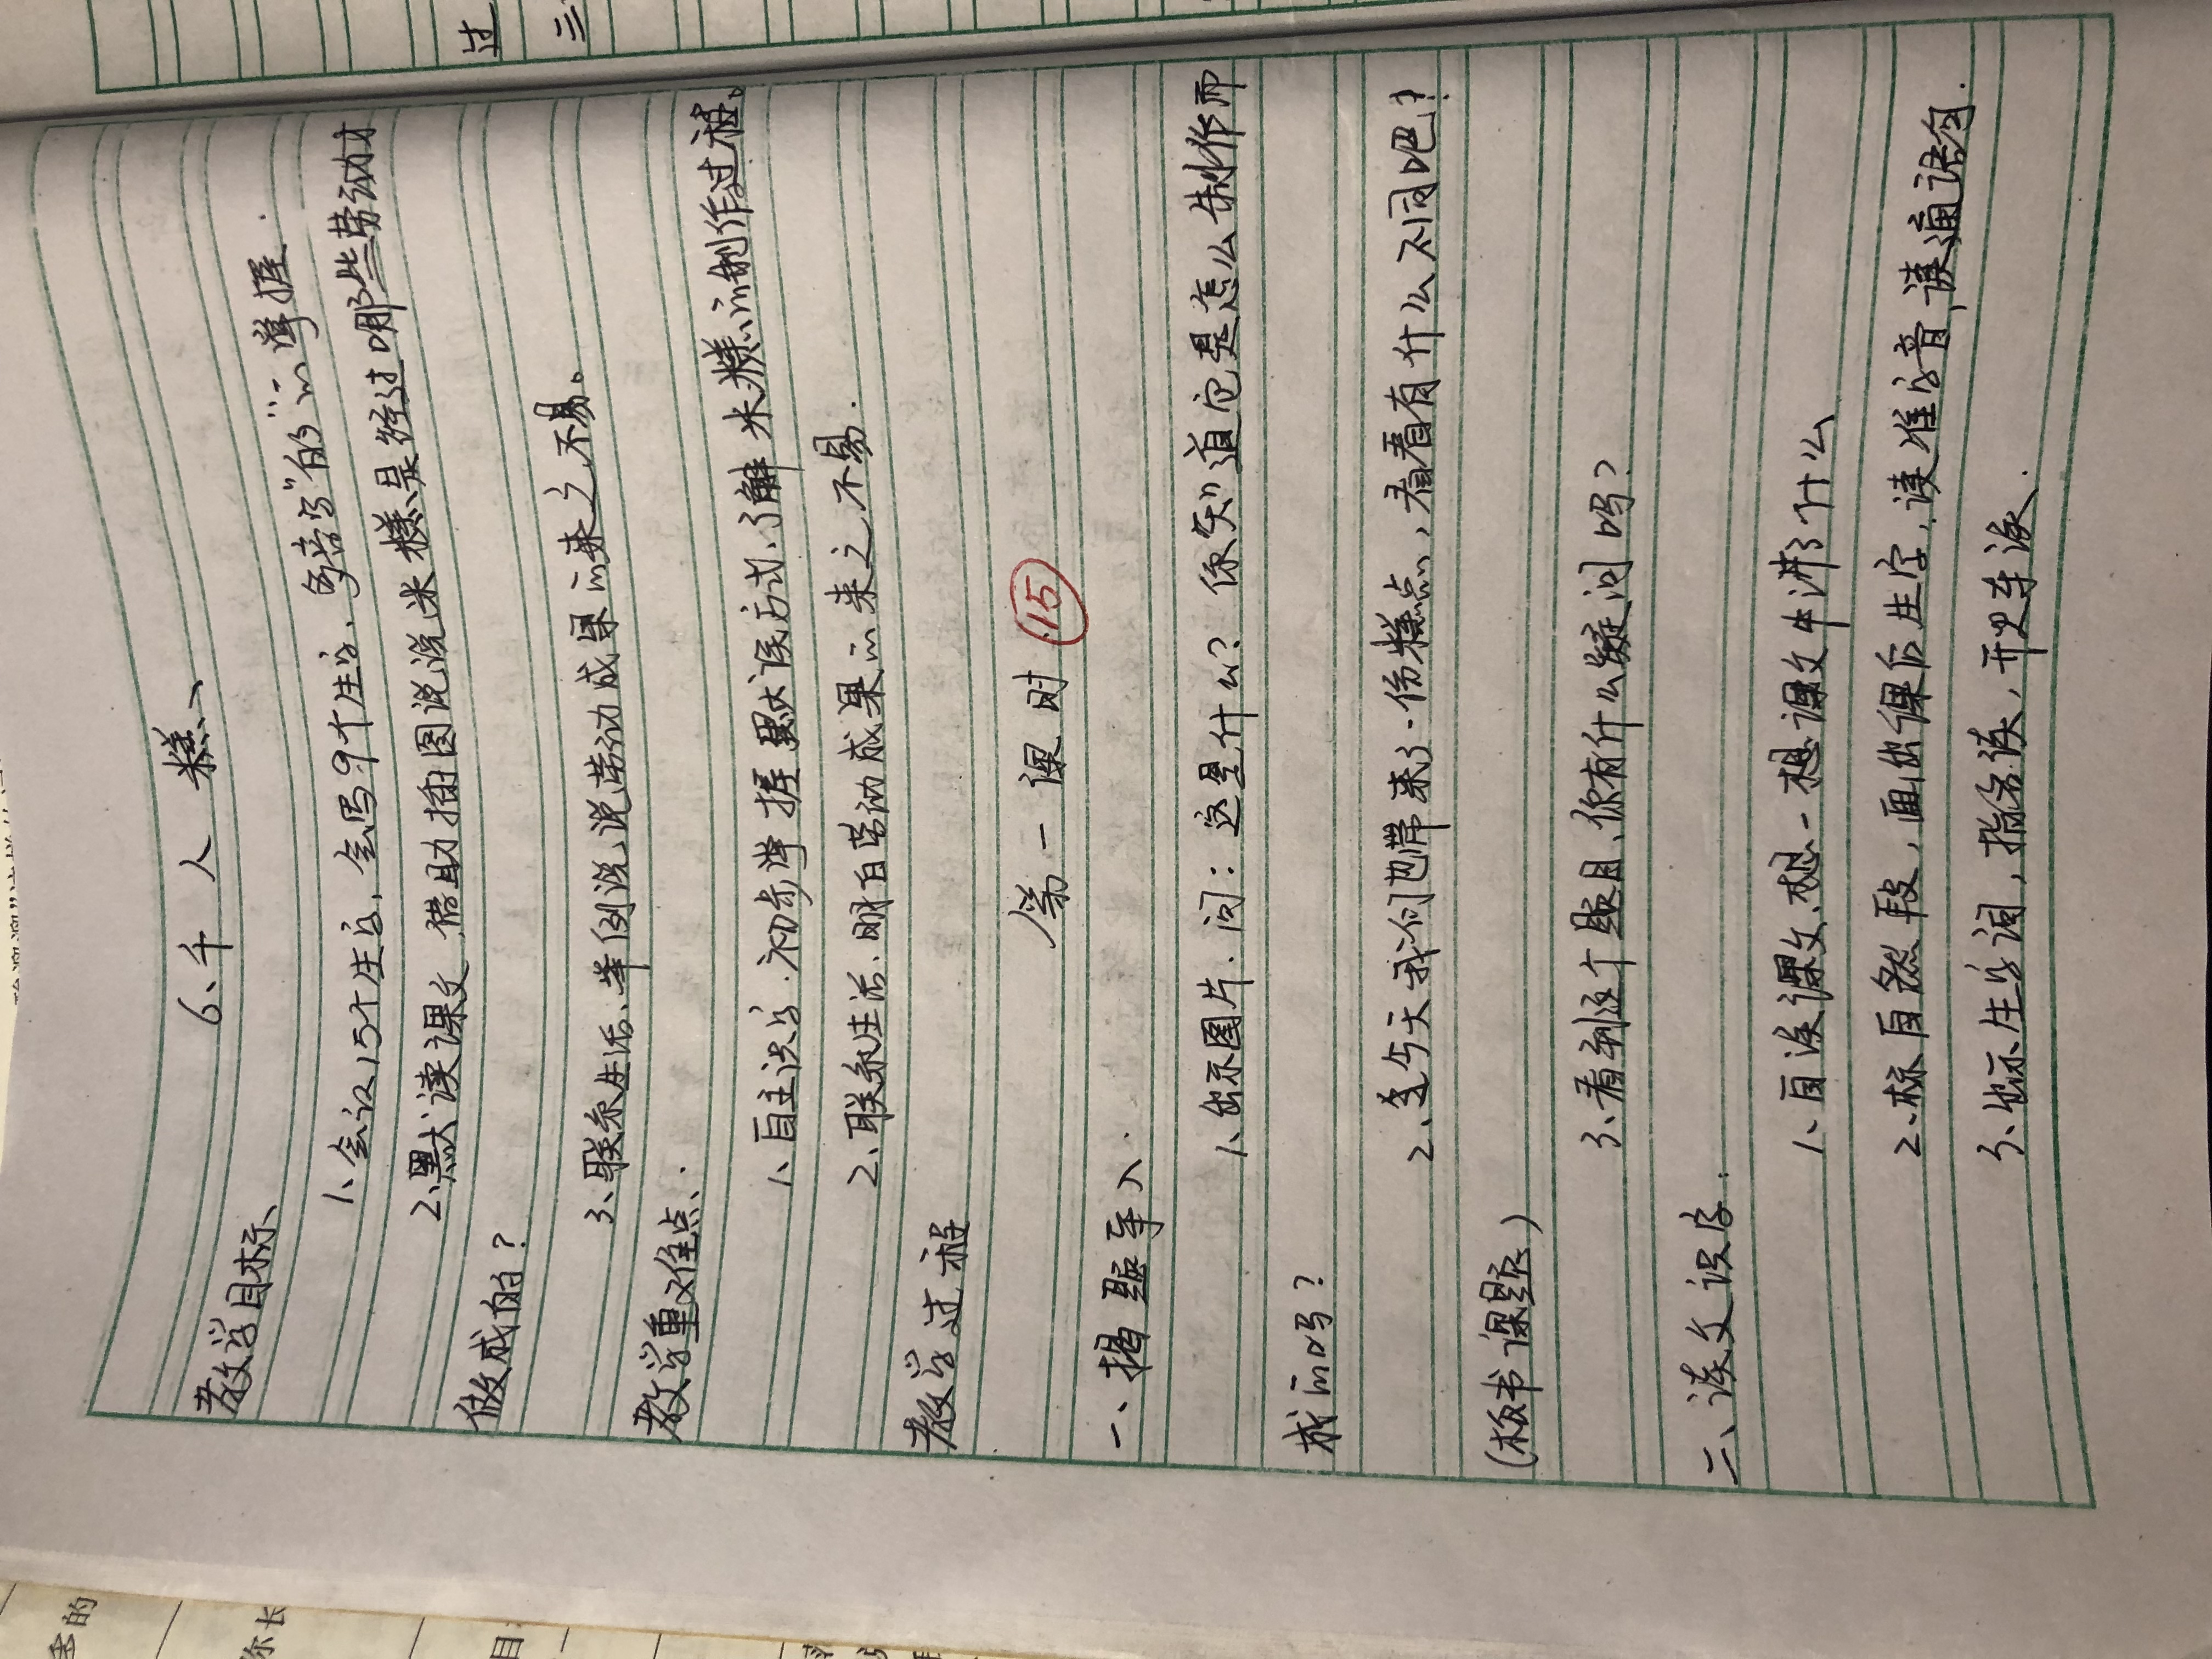 6、千人糕
教学目标、
1、会认15个生字,会写9个生字、多音字"的"的掌握.
2、默读课文,借助插图说说米糕是经过哪些劳动才
做成的?
3、联系生活、举例说说劳动成果的来之不易。
教学重难点、
1、自主识字.初步掌握默读方式、了解米糕的制作过程。
2、联系生活.明白劳动成果的来之不易.
教学过程
第一课时 (15)
一、揭题导入.
1、出示图片.问:这是什么?你知道它是怎么制作而
成的吗?
2、今天我们也带来了一份糕点,看看有什么不同吧!
(板书课题)
3、看到这个题目、你有什么疑问吗?
二、读文识字:
1、自读课文、想一想课文中讲了什么
2、标自然段,画出课后生字,读准字音,读通语句.
3、出示生字词,指名读,开火车读.
过
三